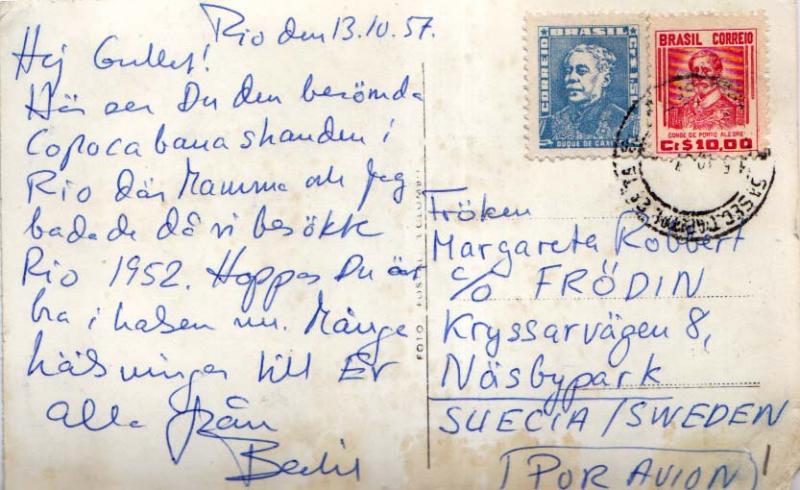 Rio den 13.10.57.
Hej Gullet!
Här ser Du den berömda
Copocabanastranden i
Rio där Mamma och Jag
badade då vi besökte
Rio 1952. Hoppas Du är
bra i halsen nu. Många
hälsningar till Er
alla från
Bertil
BRASIL
CORREIO
DUQUE DE CAXIAS
BRASIL CORREIO
CONDE DE PORTO ALEGRE
Cr$10,00
FOTO POSTAL COLOMBO
Fröken
Margareta Robbert
c/o FRÖDIN
Kryssarvägen 8,
Näsbypark
SUECIA/SWEDEN
POR AVION